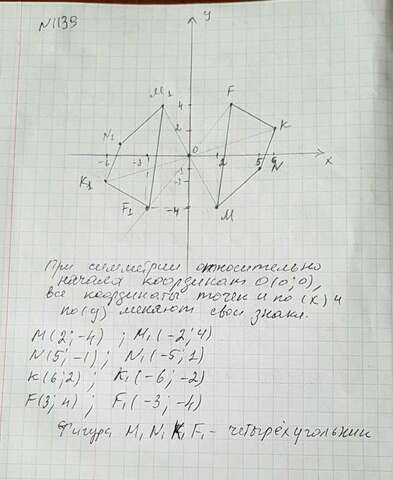 N1139
y
M1 4 F
2 K
N1
-6 -3 0 2 5 6 x
N
K1
F1 -4 M
При симметрии относительно
начала координат O(0;0),
все координаты точек и по (x) и
по (y) меняют свои знаки.
M(2;-4) ; M1(-2;4)
N(5;-1); N1(-5;1)
K(6;2) ; K1(-6;-2)
F(3;4) ; F1(-3;-4)
Фигура M1 N1 K1 F1 - четырёхугольник